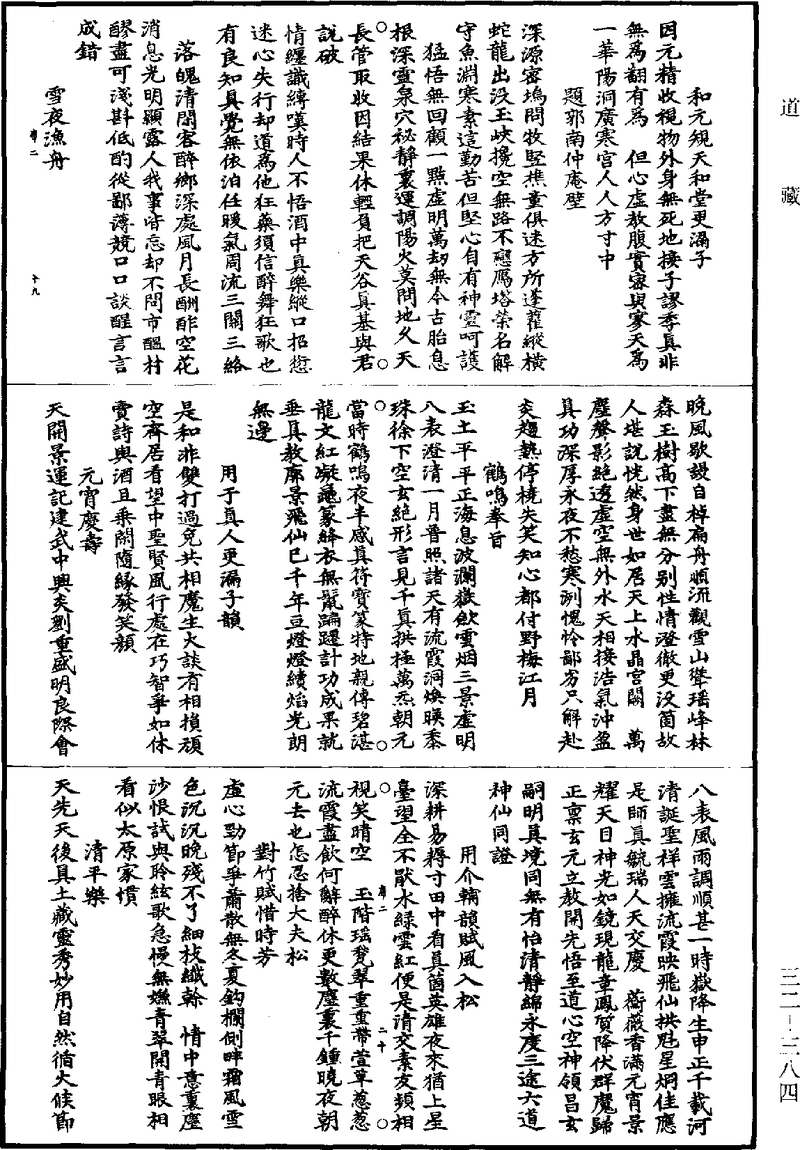 道藏
和元規天和堂更漏子
因元精收視物外身無死地接子謬季真非
無為翻有為　但心虛教腹實寥與寥天為
一華陽洞廣寒宮人人方寸中
題郭南仲庵壁
深源密塢問牧豎樵童俱迷方所蓬藋縱橫
蛇龍出没玉峽攙空無路不戀鴈塔榮名解
守魚淵寒素這勤苦但堅心自有神靈呵護
猛悟無回顧一點虛明萬劫無今古胎息
根深靈泉穴秘靜裏運調陽火莫問地久天
長管取收因結果休輕負把天谷真基與君
説破
情纏識縛嘆時人不悟酒中真樂縱口招愆
迷心失行却道為他狂藥須信醉舞狂歌也
有良知真覺無依泊任暖氣周流三關三絡
落魄清閑客醉鄉深處風月長酬酢空花
消息光明顯露人我事皆忘却不問市醞村
醪盡可淺斟低酌從鄙薄競口口談醒言言
成錯
雪夜漁舟
晚風歇謾自棹扁舟順流觀雪山聳瑤峰林
森玉樹高下盡無分别性情澄徹更没箇故
人堪説恍然身世如居天上水晶宮闕　萬
塵聲影絶透虛空無外水天相接浩氣沖盈
真功深厚永夜不愁寒冽愧怜鄙劣只解赴
炎趨熱停橈失笑知心都付野梅江月
鶴鳴奉旨
玉土平平正海息波瀾嶽斂雲烟三景虛明
八表澄清一月普照諸天有流霞洞煥映黍
珠徐下空玄絶形言見千真拱極萬炁朝元
當時鶴鳴夜半感真符寶篆特地親傳碧湛
龍文紅凝龜篆絳衣無𩯭蹁躚計功成果就
垂真教廓景飛仙巳千年豆燈燈續焰光朗
無邊
用于真人更漏子韻
是和非雙打過免共相魔生大談有相損頑
空齋居看望中聖賢風行處在巧智爭如休
賣詩與酒且乘閑隨緣發笑顔
元宵慶壽
天開景運記建武中興炎劉重盛明良際會
八表風雨調順甚一時嶽降生申正千載河
清誕聖祥雲擁流霞映飛仙拱魁星炯佳應
是師真毓瑞人天交慶　薔薇香滿元宵景
耀天目神光如鏡現龍章鳳質降伏群魔歸
正稟玄元立教開先悟至道心空神領昌玄
嗣明真境同無有怡清靜綿永度三途六道
神仙同證
用介輔韻賦風入松
深耕易耨寸田中看真箇英雄夜來猶上星
臺望全不厭水綠雲紅便是清交素友頻相
視笑晴空　玉階瑤甃翠重重帶萱草葱葱
流霞盡飲何辭醉休更數塵裏千鍾曉夜朝
元去也怎忍捨大夫松
對竹賦惜時芳
虛心勁節爭蕭散無冬夏鈎欄側畔霜風雪
色沉沉晚殘不了細枝纖幹　情中意裏塵
沙恨試與聆絃歌急慢無嫌青翠開青眼相
看似太原家慣
清平樂
天先天後具土藏靈秀妙用自然循大候節
三二－三八四